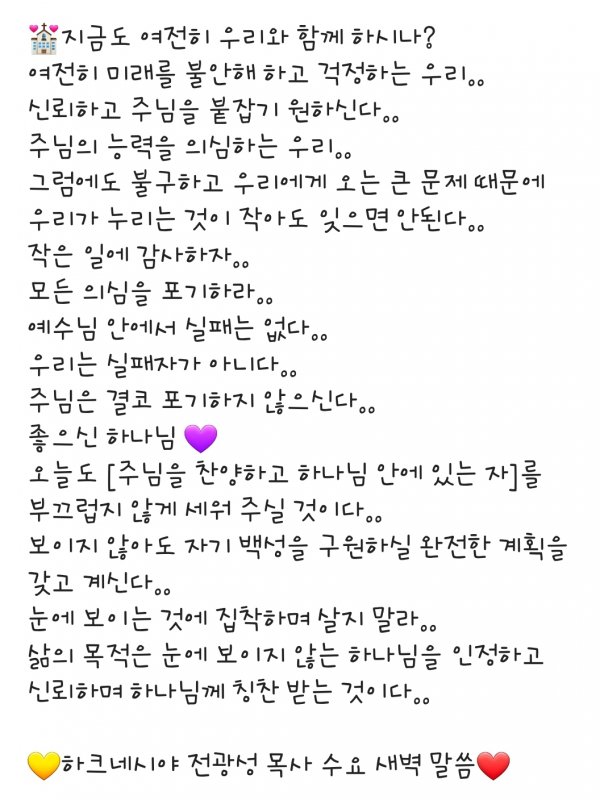 💒지금도 여전히 우리와 함께 하시나?
여전히 미래를 불안해 하고 걱정하는 우리。。
신뢰하고 주님을 붙잡기 원하신다。。
주님의 능력을 의심하는 우리。。
그럼에도 불구하고 우리에게 오는 큰 문제 때문에
우리가 누리는 것이 작아도 잊으면 안된다。。
작은 일에 감사하자。。
모든 의심을 포기하라。。
예수님 안에서 실패는 없다。。
우리는 실패자가 아니다。。
주님은 결코 포기하지 않으신다。。
좋으신 하나님 💜
오늘도 [주님을 찬양하고 하나님 안에 있는 자]를
부끄럽지 않게 세워 주실 것이다。。
보이지 않아도 자기 백성을 구원하실 완전한 계획을
갖고 계신다。。
눈에 보이는 것에 집착하며 살지 말라。。
삶의 목적은 눈에 보이지 않는 하나님을 인정하고
신뢰하며 하나님께 칭찬 받는 것이다。。
💛하크네시야 전광성 목사 수요 새벽 말씀❤️